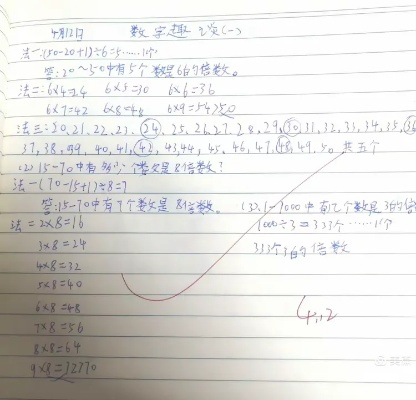 4月12日 数字趣谈(一)
法一:(50-20+1)÷6=5……1个
答:20~50中有5个数是6的倍数。
法二:6×4=24 6×5=30 6×6=36
6×7=42 6×8=48 6×9=54>50
法三:20,21,22,23,24,25,26,27,28,29,30,31,32,33,34,35,36
37,38,39,40,41,42,43,44,45,46,47,48,49,50 共五个
(2)15-70中有多少个数是8倍数?
法一(70-15+1)÷8=7
答:15-70中有7个数是8倍数。 (3)1-1000中有几个数是3的倍
法二2×8=16 1000÷3=333个……1个
3×8=24 333个3的倍数
4×8=32
5×8=40
6×8=48
7×8=56
8×8=64
9×8=72>70
4.12